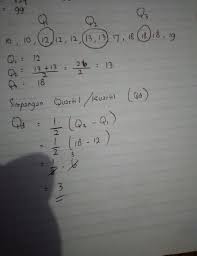 = 99
Q₁ Q₂ Q₃
10, 10, 12, 12, 12, 13, 13, 17, 18, 18, 18, 19
Q₁ = 12
Q₂ = 13 + 13 / 2 = 26 / 2 = 13
Q₃ = 18
Simpangan Quartil / kuartil (Qd)
Qd = 1/2 (Q₃ - Q₁)
= 1/2 (18 - 12)
= 1/2 . 6 3
= 3